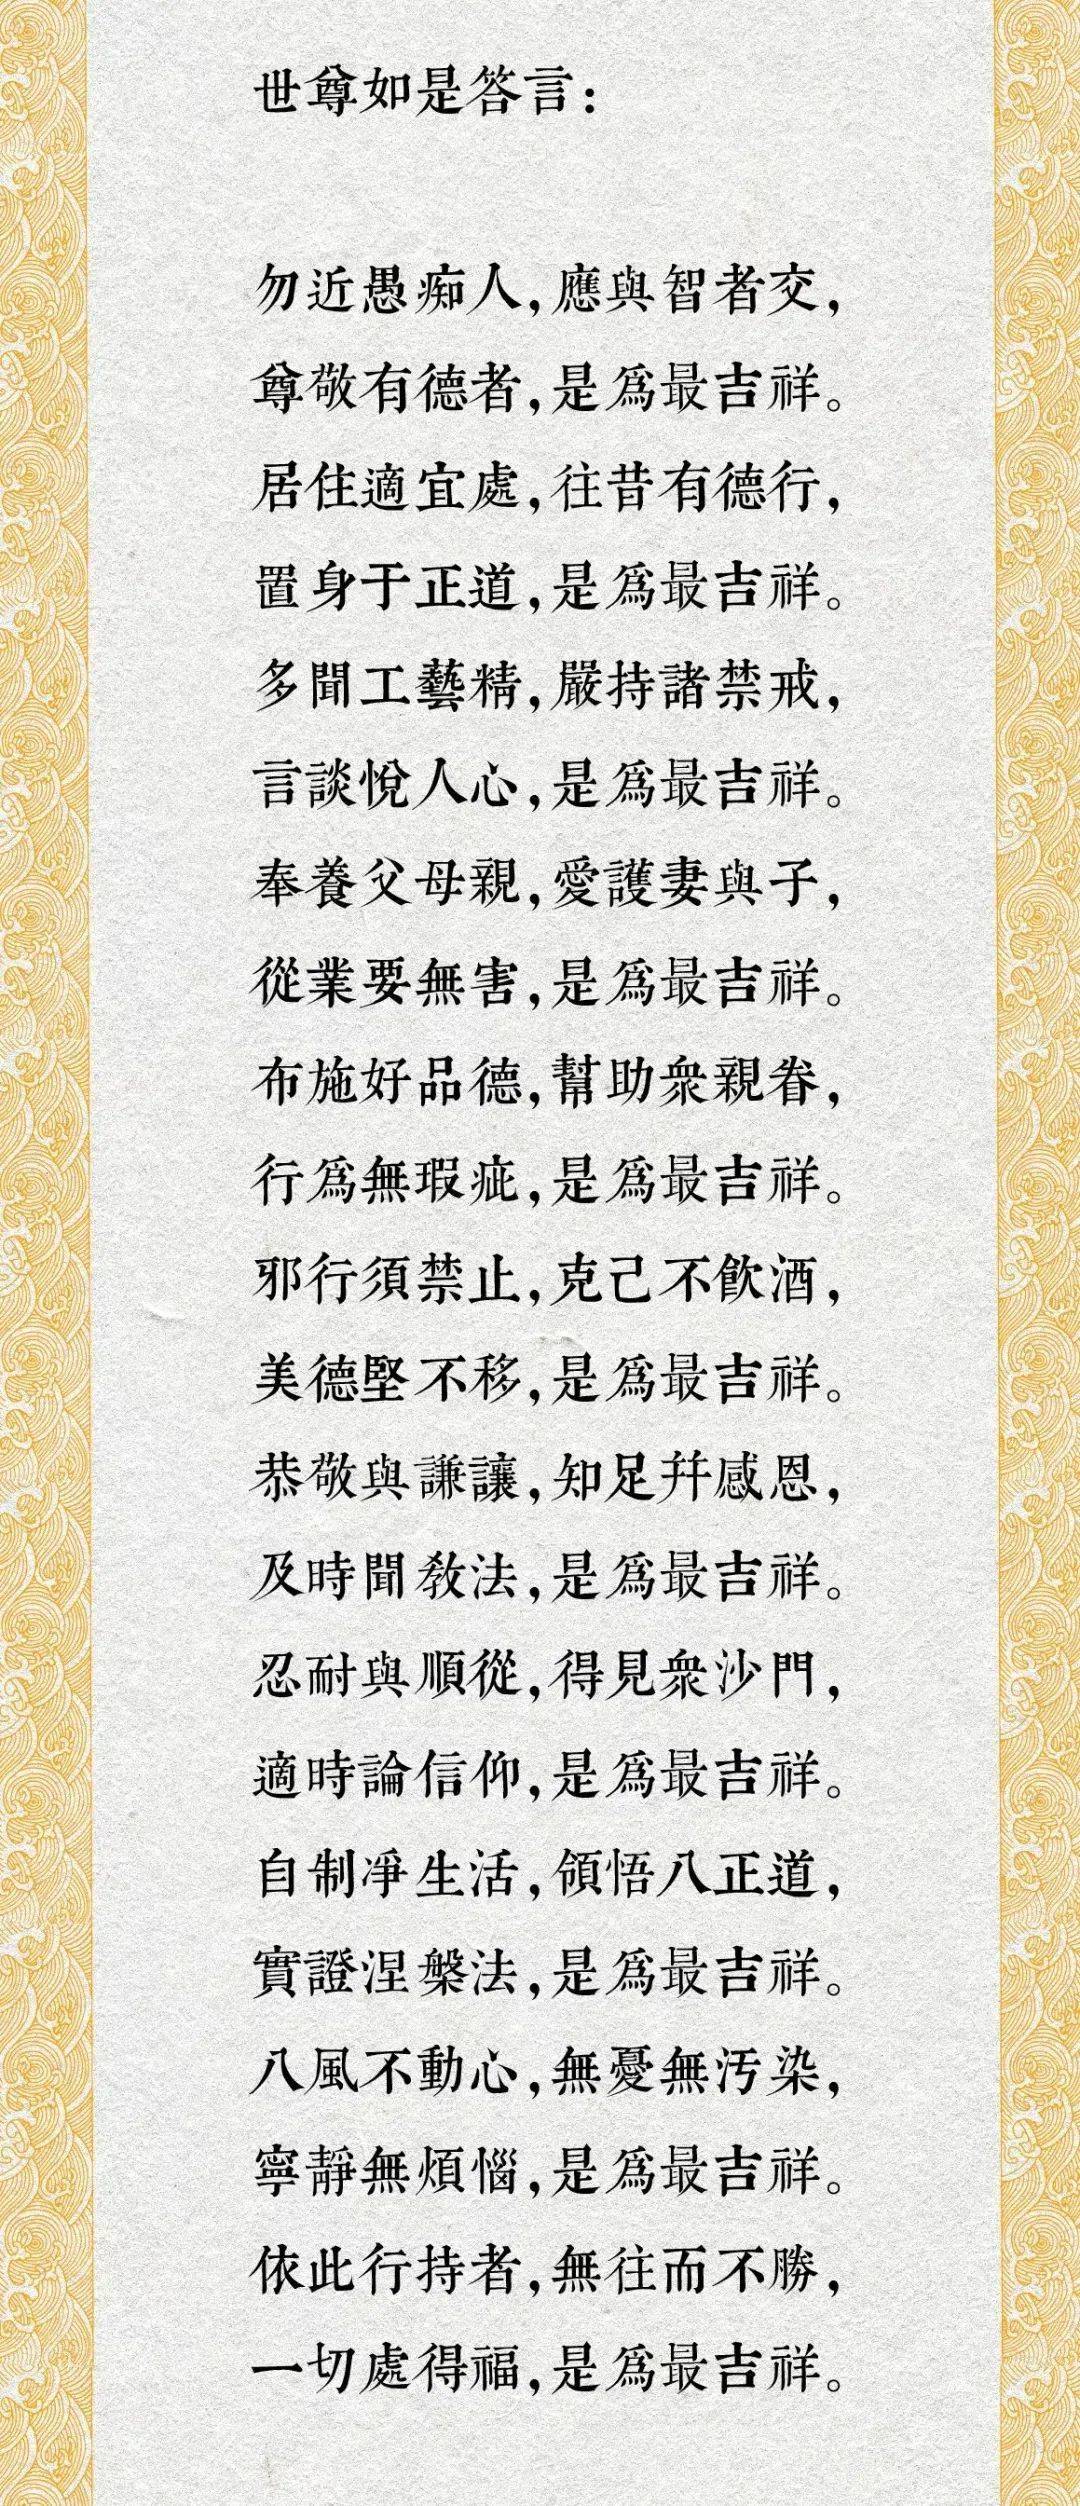 世尊如是答言：
勿近愚痴人，應與智者交，
尊敬有德者，是為最吉祥。
居住適宜處，往昔有德行，
置身于正道，是為最吉祥。
多聞工藝精，嚴持諸禁戒，
言談悅人心，是為最吉祥。
奉養父母親，愛護妻與子，
從業要無害，是為最吉祥。
布施好品德，幫助衆親眷，
行為無瑕疵，是為最吉祥。
邪行須禁止，克己不飲酒，
美德堅不移，是為最吉祥。
恭敬與謙讓，知足并感恩，
及時聞教法，是為最吉祥。
忍耐與順從，得見衆沙門，
適時論信仰，是為最吉祥。
自制凈生活，領悟八正道，
實證涅槃法，是為最吉祥。
八風不動心，無憂無汚染，
寧靜無煩惱，是為最吉祥。
依此行持者，無往而不勝，
一切處得福，是為最吉祥。